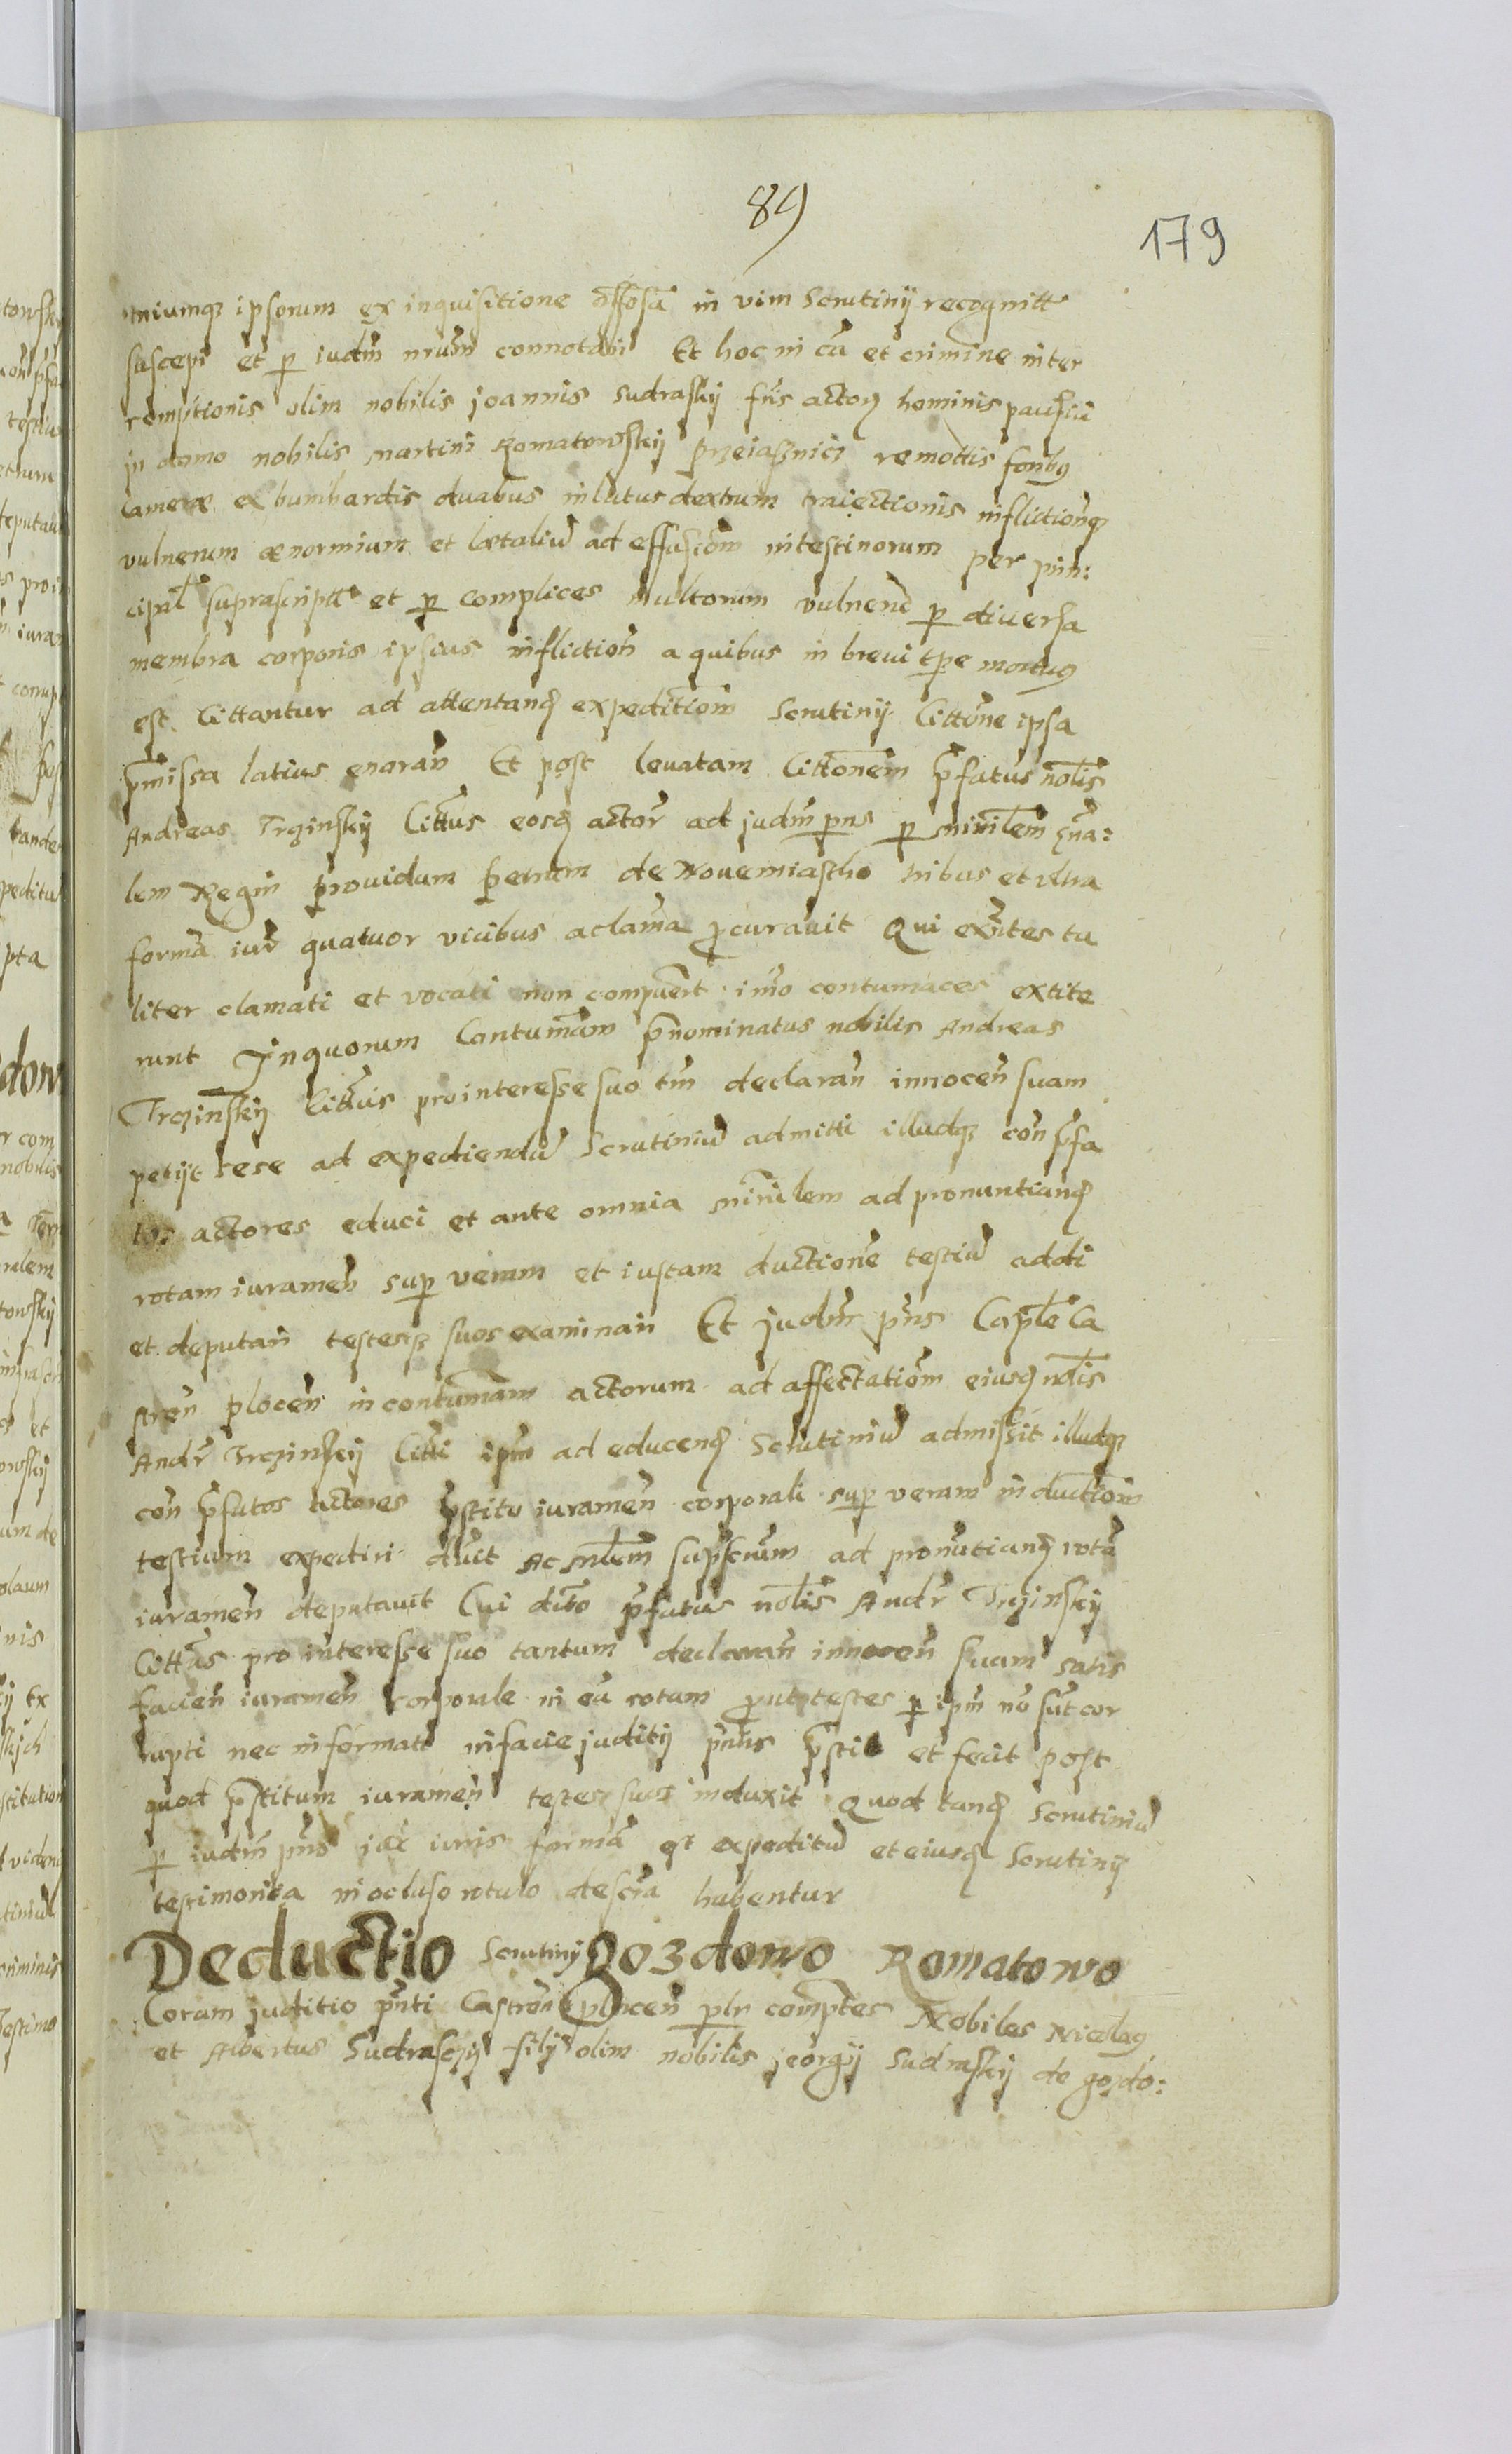 89
179
niumq ipsorum ex inquisitione in vim Scrutinij recognitt
suscepi et p iudm nrum connotari Et hoc in cā et crimine inter
remptionis olim nobilis joannis Sudraskij frīs actoq hominis
in domo nobilis martini Romatowskij remottis foribq
camerae ex bumbardis duabus in latus dextrum traiectionis inflictionq
vulnerum aenormium et laetaliū ad effusiom intestinorum per prin:
cipal suprascriptt et p complices multorum vulnerū p diuersa
membra corporis ipsius infliction a quibus in breui tpe mortuq
est Cittantur ad attentand expeditiom Scrutinij Cittōne ipsa
pmissa latius enaran Et post leuatam Cittonem pfatus nolis
Andreas Trzinskij Cittus eosd actor ad judm pns p minilem gna:
lem Regni prouidum petrum de Nouemiastho tribus et vltra
formā iur quatuor vicibus aclamā pcurauit Qui exntes ta
liter clamati et vocati non compuert imo contumaces extite
runt In quorum Contumam pnominatus nobilis Andreas
Trzinskij Cittus pro interesse suo tm declaran innocen suam
petijt sese ad expediendū Scrutiniū admitti illudq con pfa
tos actores educi et ante omnia minilem ad pronuntiand
rotam iuramen sup veram et iustam ductione testiū addi
et deputari testesq suos examinari Et judm pns Caple Ca
stren plocen in contumam actorum ad affectatiom eiusd nolis
Andr Trzinskij Citti ipm ad educend Scrutiniū admissit illudq
con pfatos actores pstito iuramen corporali sup veram inductiom
testium expediri duxit Ac mlem supscrum ad pronutiand rotā
iuramen deputauit Cui dito pfatus nolis Andr Trzinskij
Cittus pro interesse suo tantum declaran innocen suam satis
facien iuramen corporale in eā rotam prout testes p ipm nō sūt cor
rupti nec informati in facie juditij pntis pstit et fecit post
quod pstitum iuramen testes suos induxit Quod tand Scrutiniū
p iudm pns iux iuris formā est expeditū et eiusd Scrutinij
testimonia in ocluso rotulo descra habentur
Deductio Scrutinij Gozdowo Romatowo
Coram juditio pnti Castren plocen plr comptes Nobiles Nicolaq
et Albertus Sudrasczij filij olim nobilis jeorgij Sudraskij de gozdo: